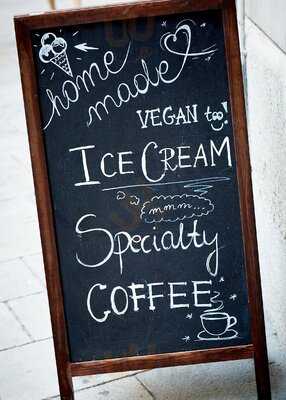 home
made
VEGAN too!
ICE CREAM
mmm...
Specialty
COFFEE